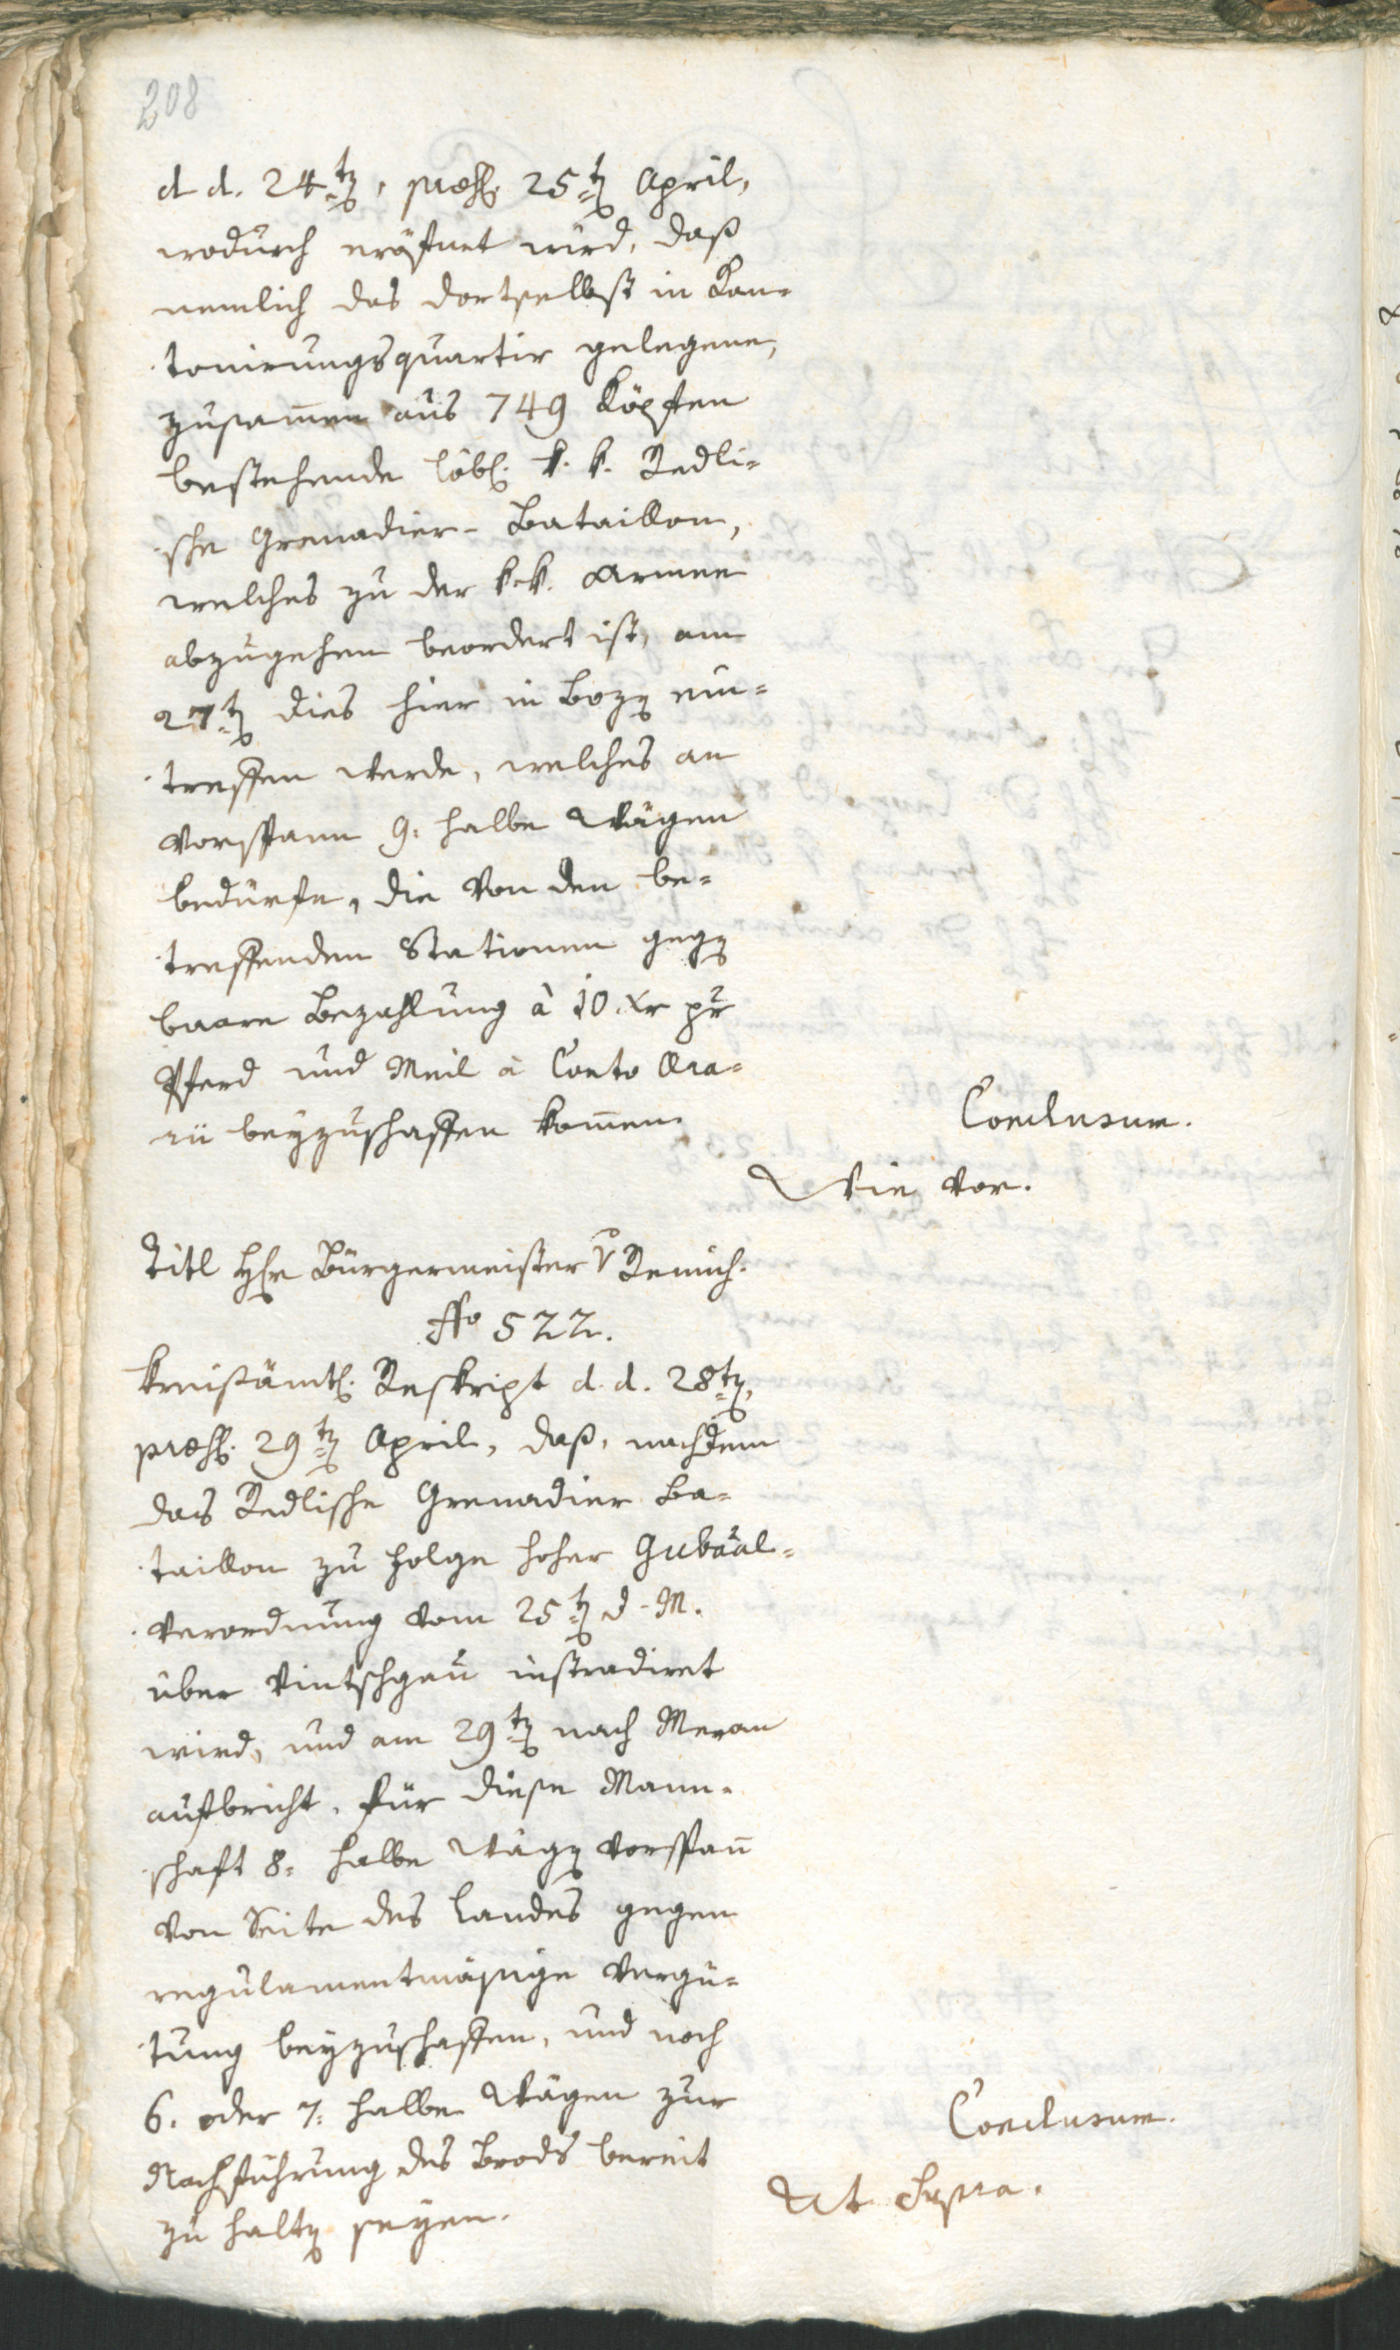 208
d. d. 24ten, præs. 25ten April,
wodurch eröfnet wird, daß
nemlich das dortselbst in Kan-
tonirungsquartir gelegene,
zusamen aus 749 Köpfen
bestehende löbl. k. k. Redli-
sche Grenadier-Bataillon,
welches zu der k. k. Armee
abzugehen beordert ist, am
27ten dies hier in Bozen ein-
treffen werde, welches an
Vorspann 9. halbe Wägen
bedürfe, die von den be-
treffenden Stationen gegen
baare Bezahlung à 10. Xr pr
Pferd und Meil à Conto Æra-
rii beyzuschaffen komen.
Conclusum.
Wie vor.
Titl Hr Bürgermeister v Remich.
No 522.
Kreisämtl. Reskript d. d. 28ten,
præs. 29ten April, daß, nachdem
das Redlische Grenadier Ba-
taillon zu Folge hoher Gubaal-
Verordnung vom 25ten d. M.
über Vintschgau instradiret
wird, und am 29ten nach Meran
aufbricht, für diese Mann-
schaft 8. halbe Wägen Vorspan
von Seite des Landes gegen
regulamentmäßige Vergü-
tung beyzuschaffen, und noch
6. oder 7. halbe Wägen zur
Nachführung des Brods bereit
zu halten seyen.
Conclusum.
Ut Supra.